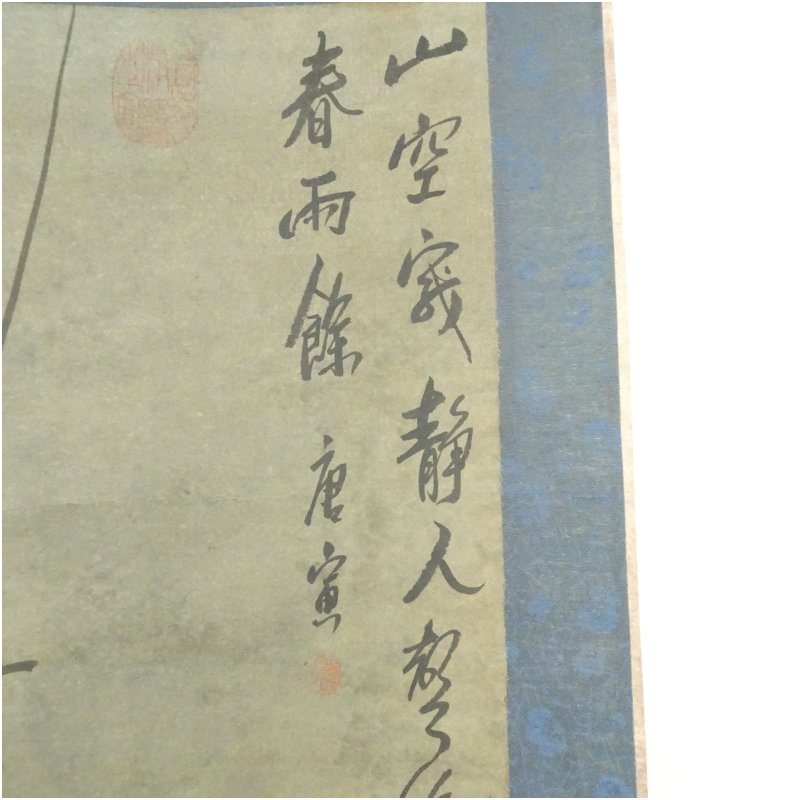 山空寂静人聲
春雨餘 唐寅